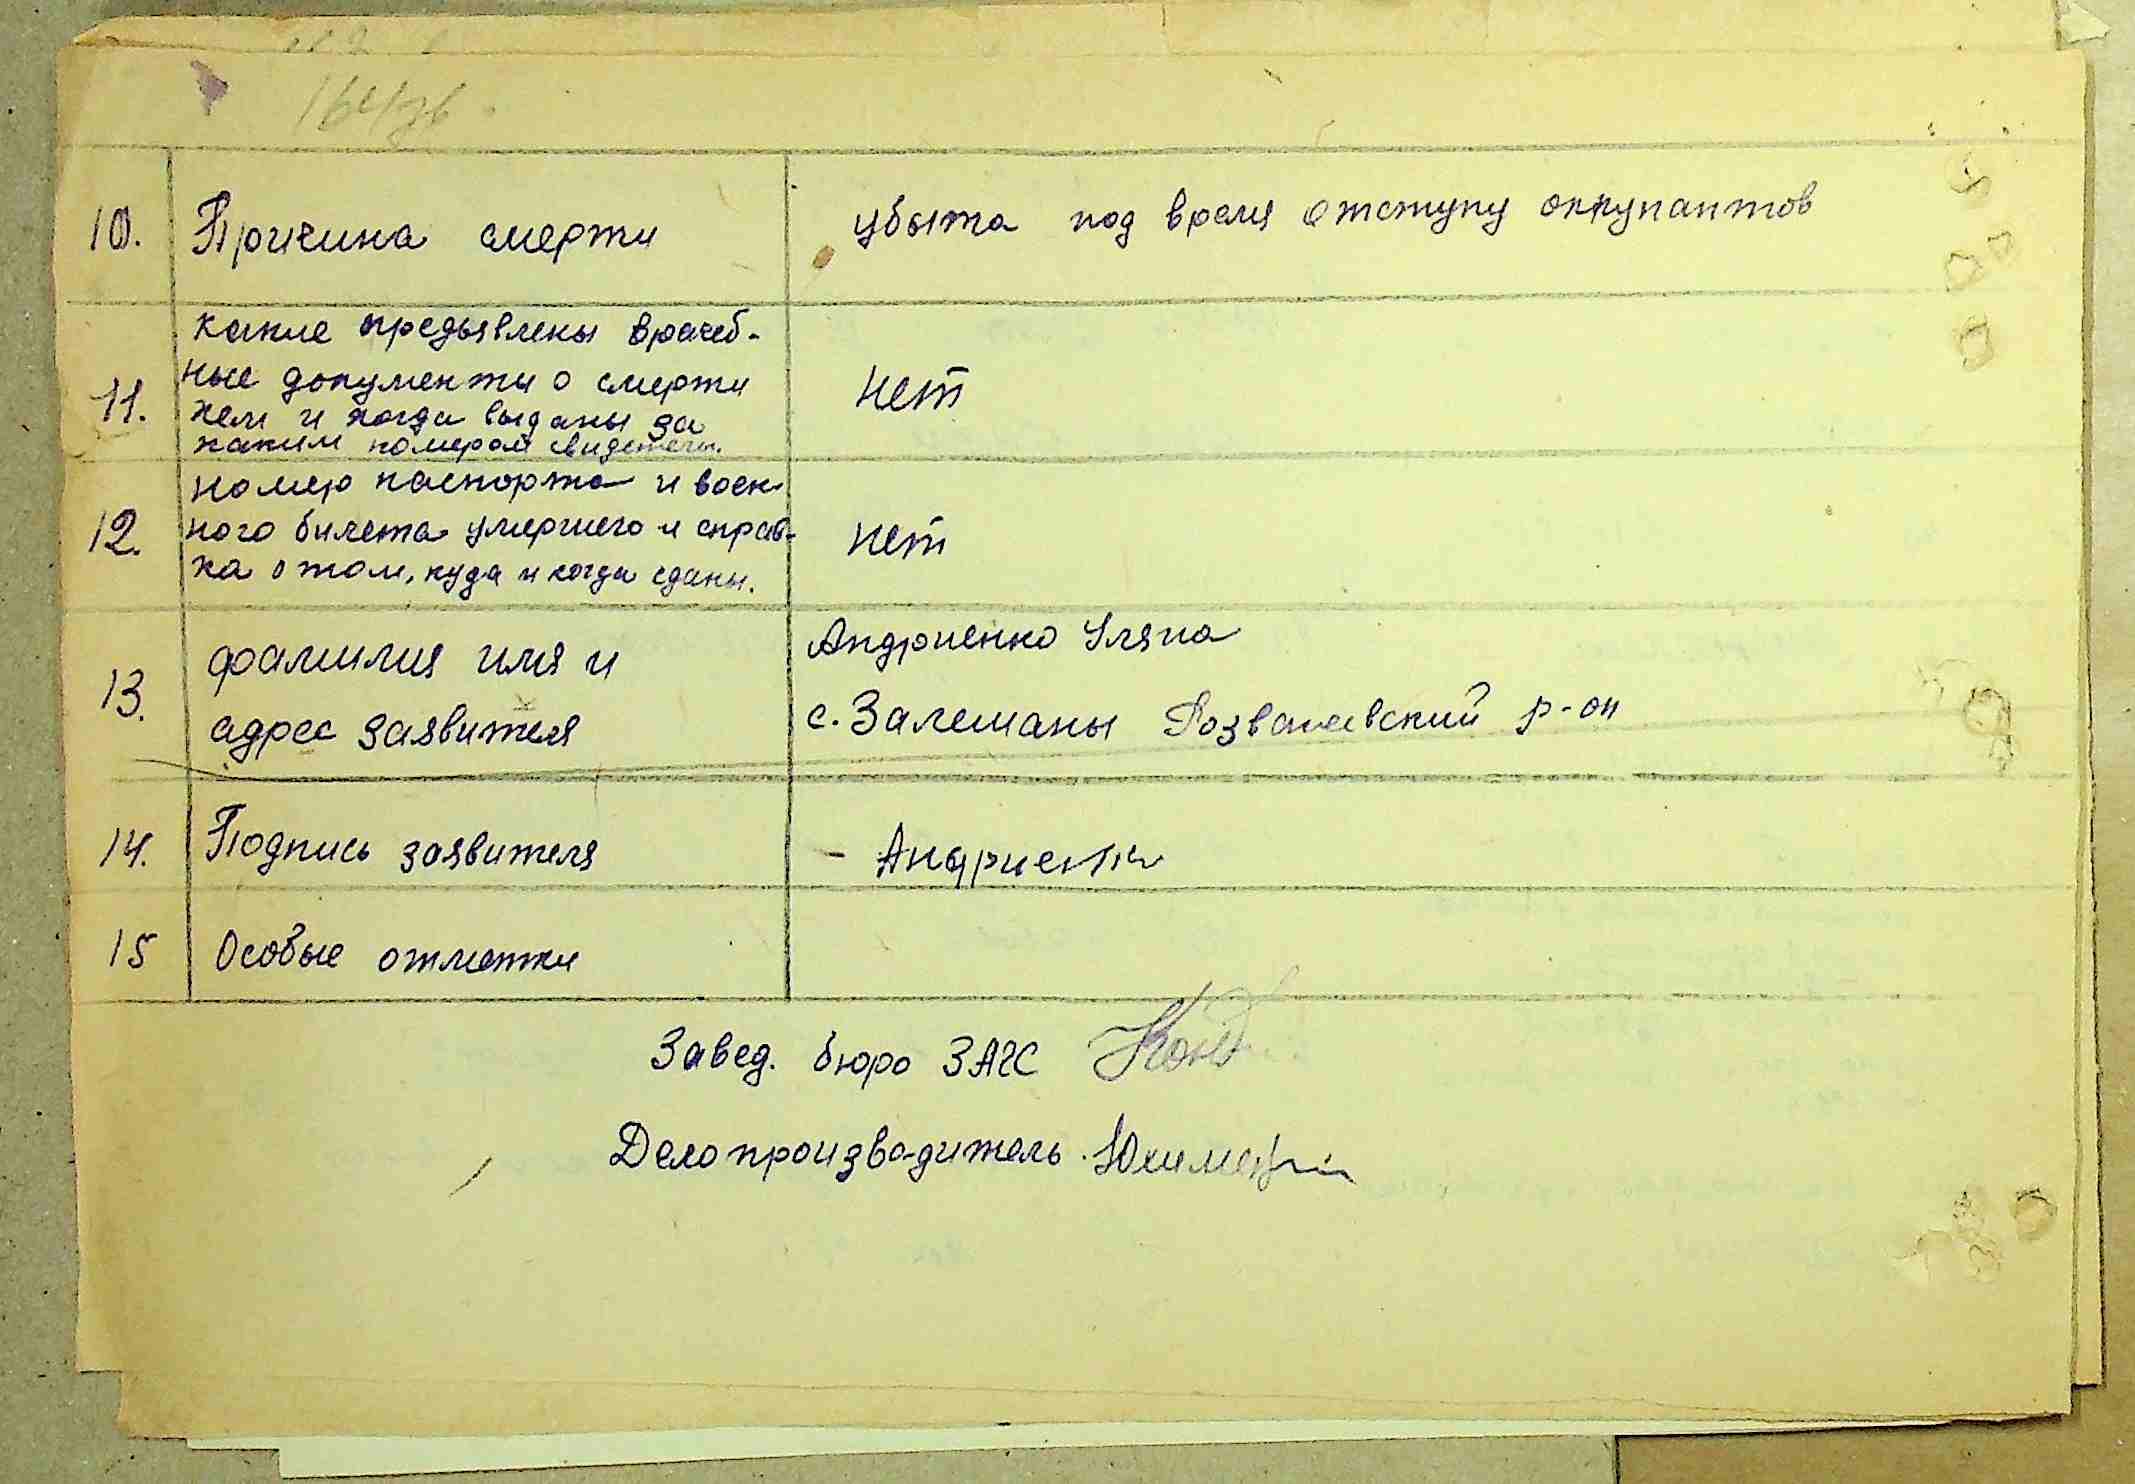 164зв.
10. Причина смерти убыта под время отступу оккупантов
11. Какие предъявлены врачеб-
ные документы о смерти
кем и когда выданы за
каким номером свидетель.
нет
12. Номер паспорта и воен-
ного билета умершего и справ-
ка о том, куда и когда сданы.
нет
13. Фамилия имя и
адрес заявителя
Андриенко Уляна
с. Залешаны Розважевский р-он
14. Подпись заявителя - Андриенко
15 Особые отметки
Завед. бюро ЗАГС
Делопроизводитель